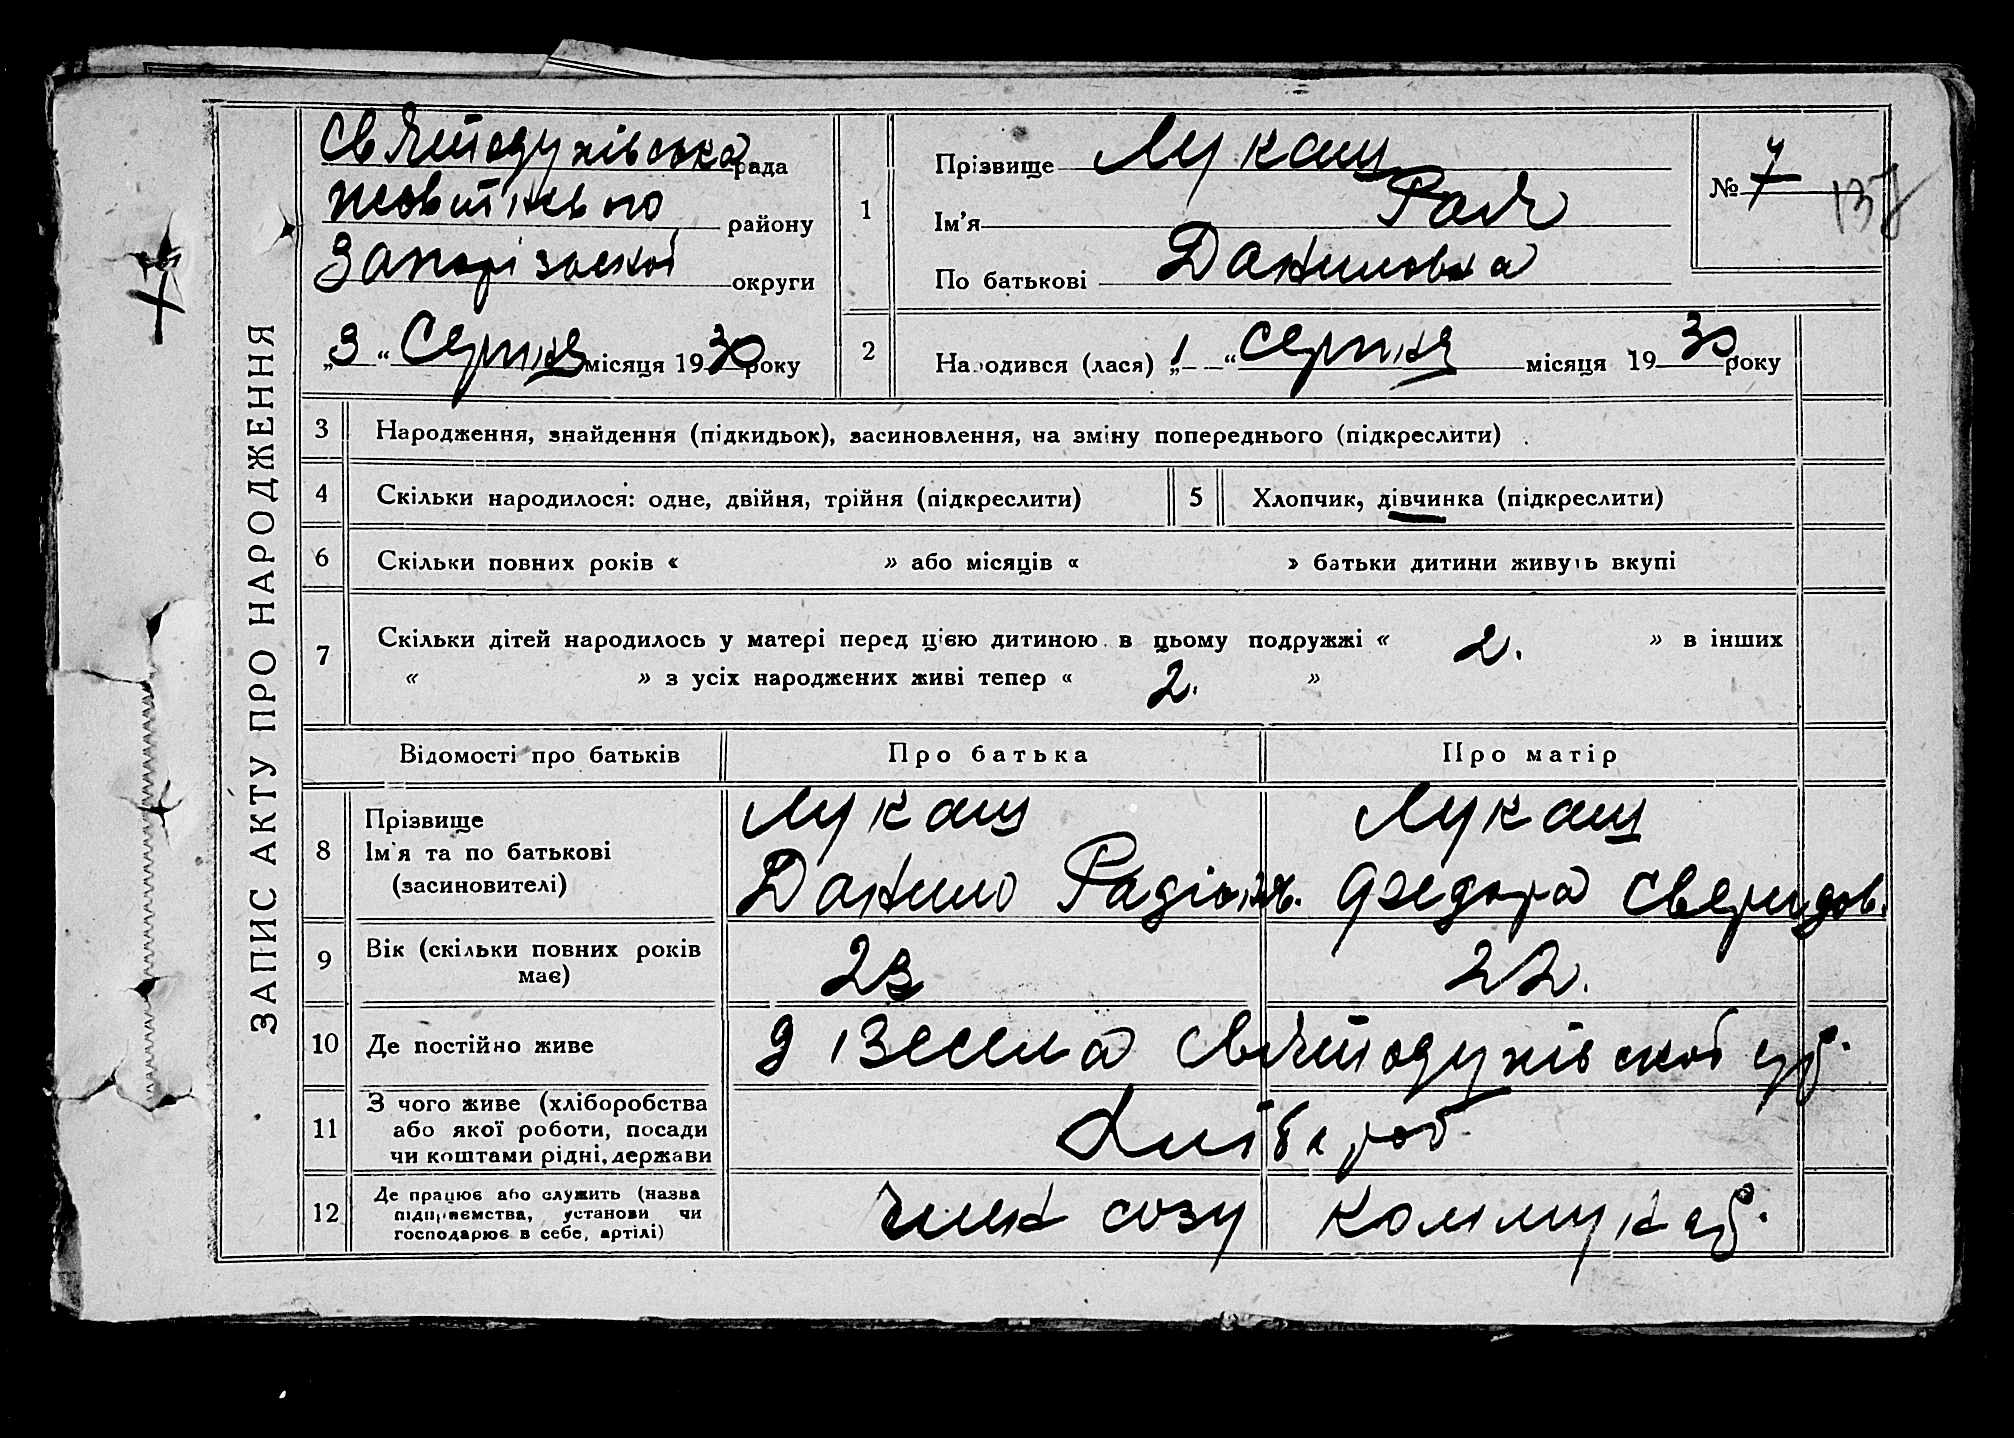 ЗАПИС АКТУ ПРО НАРОДЖЕННЯ
Святодухівська рада
Жовтнєвого району
Запорізської округи
„3“ Серпня місяця 1930 року
1
Прізвище Лукаш
Ім'я Рая
По батькові Даниловна
№ 7
137
2
Народився (лася) „1“ Серпня місяця 1930 року
3 Народження, знайдення (підкидьок), засиновлення, на зміну попереднього (підкреслити)
4 Скільки народилося: одне, двійня, трійня (підкреслити)
5 Хлопчик, дівчинка (підкреслити)
6 Скільки повних років « » або місяців « » батьки дитини живуть вкупі
7 Скільки дітей народилось у матері перед цією дитиною в цьому подружжі « 2. » в інших
« » з усіх народжених живі тепер « 2. »
Відомості про батьків
Про батька
Про матір
8 Прізвище
Ім'я та по батькові
(засиновителі)
Лукаш
Данило Радіон.
Лукаш
Федора Свиридов.
9 Вік (скільки повних років
має)
23
22.
10 Де постійно живе
Святодухівскої
11 З чого живе (хліборобства
або якої роботи, посади
чи коштами рідні, держави
Хлібороб
12 Де працює або служить (назва
підприємства, установи чи
господарює в себе, артілі)
член созу